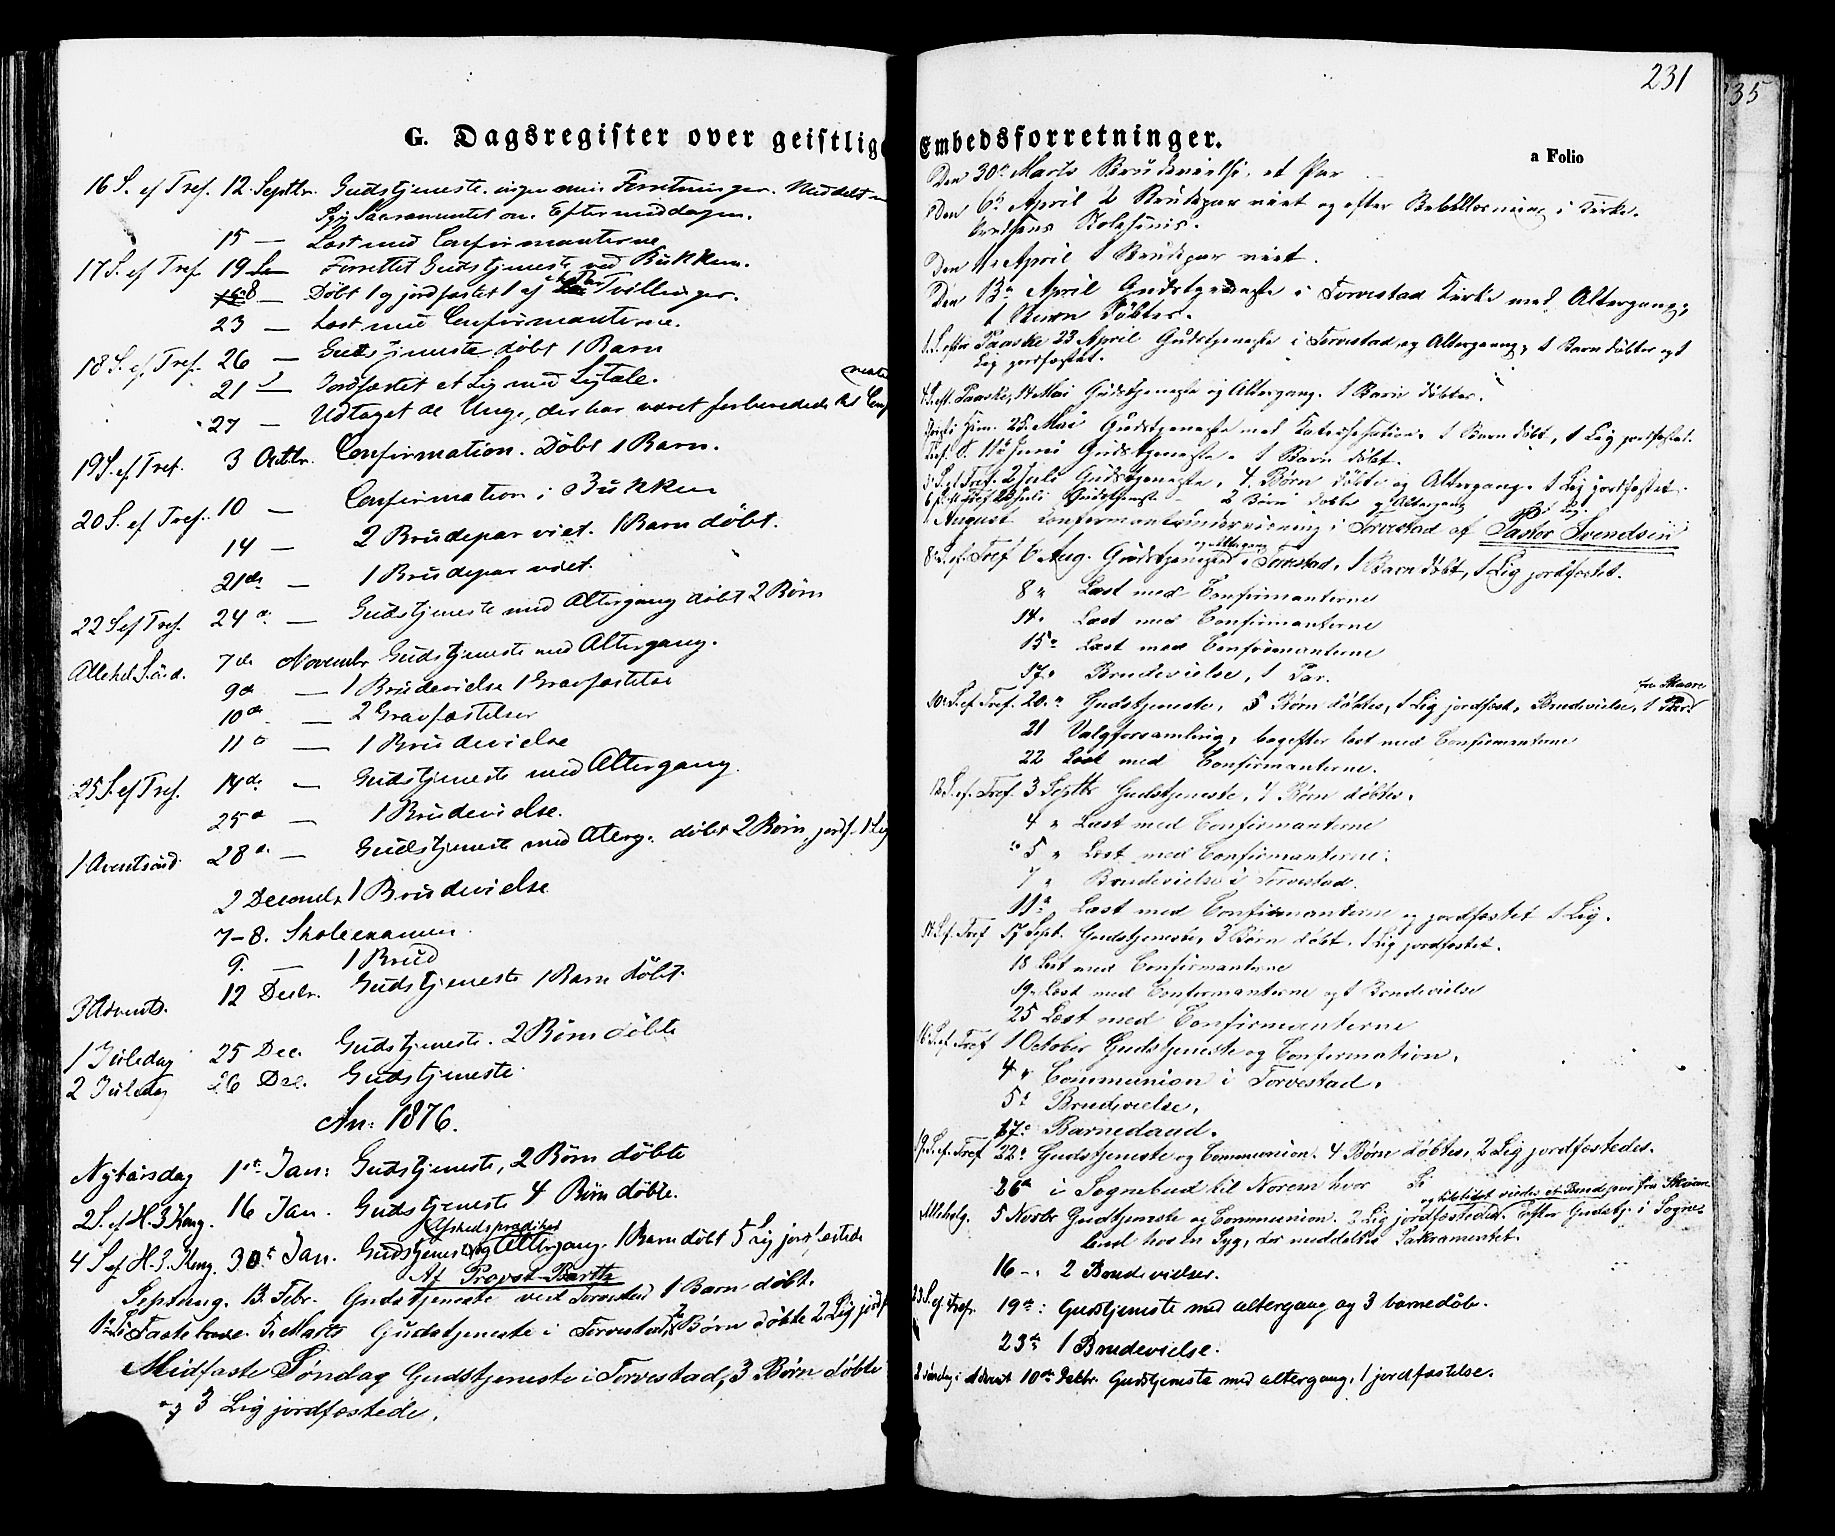 G. Dagsregister over geistlige
16 S. ef Tref. 12. Septbr. Gudstjeneste. ingen min. Forretninger. Meddelt en
Syg Sacramentet om Eftermiddagen.
15 — Læst med Confirmanterne
17 S. ef Tref. 19 — Forrettet Gudstjeneste ved Bukken.
18 — Døbt 1 og jordfæstet 1 af Tvillinger.
23 — Læst med Confirmanterne.
18 S. ef Tref. 26 — Gudstjeneste døbt 1 Barn
21 — Jordfæstet et Lig med Ligtale.
27 — Udtaget de Unge, der har været forberedede til Conf
19 S. ef Tref. 3 Octbr. Confirmation. Døbt 1 Barn.
20 S. ef Tref. 10 — Confirmation i Bukken
14 — 2 Brudepar viet. 1 Barn døbt.
21de — 1 Brudepar viet.
22 S ef Tref. 24 — Gudstjeneste med Altergang døbt 2 Børn
Allehel. Sönd. 7de Novembr Gudstjeneste med Altergang.
9de — 1 Brudevielse 1 Gravfæstelse
10de — 2 Gravfæstelser
11 — 1 Brudevielse
25 S. ef Tref. 14de — Gudstjeneste med Altergang.
25 — 1 Brudevielse.
1 Aventsönd 28 — Gudstjeneste med Alterg. døbt 2 Børn, jordf. 1 Lig
2 Decemb. 1 Brudevielse
7-8. Skoleexamen
9. — 1 Brud
3 Advents. 12 Decbr. Gudstjeneste 1 Barn døbt.
1 Juledag 25 Dec. Gudstjeneste. 2 Børn døbte
2 Juledag 26 Dec. Gudstjeneste
An: 1876.
Nytårsdag 1st Jan: Gudstjeneste, 2 Børn døbte
2 S. ef H. 3 Kong. 16 Jan. Gudstjeneste 4 Børn døbte.
Afskedsprædiken
4 S ef H. 3. Kong. 30 Jan. Gudstjeneste og Altergang. 1 Barn døbt 5 Lig jordfæstede
Af Provst
Septuag. 13. Febr. Gudstjeneste ved Torvestad 1 Barn døbt.
1 S. i Faste 5. Marts Gudstjeneste i Torvestad, 2 Børn døbte 2 Lig jordf
Midfaste Søndag Gudstjeneste i Torvestad, 3 Børn døbte
og 3 Lig jordfæstede.
231
35
Embedsforretninger.
a Folio
Den 30 Marts Brudevielse, et Par
Den 6 April 2 Brudepar viet og efter Bibellæsning i Kirke.
Den 11 April 1 Brudepar viet.
Den 13 April Gudstjeneste i Torvestad Kirke med Altergang,
1 Barn døbtes.
1. S. efter Paaske 23 April Gudstjeneste i Torvestad og Altergang, 1 Barn døbtes og 1
Lig jordfæstet.
4 S. eft. Paaske, 14 Mai Gudstjeneste og Altergang. 1 Barn døbtes.
Christi Him. 25 Mai Gudstjeneste med Katechisation, 1 Barn døbt, 1 Lig jordfæstet.
Tref. S. 11 Juni Gudstjeneste. 1 Barn døbt.
3 S. ef Tref. 2 Juli Gudstjeneste, 4 Børn døbte og Altergang. 1 Lig jordfæstet.
6 S. ef Tref 23 Juli Gudstjeneste — 2 Børn døbte og Altergang
1 August Confirmantundervisning i Torvestad af Pastor Svendsen
og Altergang
8 S. ef. Tref 6 Aug. Gudstjeneste i Torvestad, 1 Barn døbt, 1 Lig jordfæstet.
8 " Læst med Confirmanterne
14. Læst med Confirmanterne
15 Læst med Confirmanterne
17. Brudevielse, 1 Par.
fra Skaare
10 S. ef Tref. 20. Gudstjeneste, 5 Børn døbtes, 1 Lig jordfæst, Brudevielse, 1 Par.
21 Valgforsamling, bagefter læst med Confirmanterne
22 Læst med Confirmanterne.
12 S. ef. Tref. 3 Septbr Gudstjeneste, 7 Børn døbtes.
4 " Læst med Confirmanterne
5 " Læst med Confirmanterne.
7 " Brudevielse i Torvestad.
11 Læst med Confirmanterne og jordfæstet 1 Lig.
14 S. ef. Tref 17 Sept. Gudstjeneste, 3 Børn døbt. 1 Lig jordfæstet.
18 Læst med Confirmanterne
19. Læst med Confirmanterne og 1 Brudevielse
25 Læst med Confirmanterne
16 S. ef Tref 1 October Gudstjeneste og Confirmation.
4 " Communion i Torvestad.
5 Brudevielse.
17 Barnedaab.
19 S. ef. Tref 22 Gudstjeneste og Communion. 4 Børn døbtes, 2 Lig jordfæstedes.
26 i Sognebud til Norem hvor
og viedes et Brudepar fra Skaare
Allehelg. 5 Novbr Gudstjeneste og Communion. 2 Lig jordfæstedes. Efter Gudstj. i Sogne-
bud hos en Syg, der meddeltes Sakramentet.
16 — 2 Brudevielser.
23 S. ef. Tref. 19de: Gudstjeneste med altergang og 3 barnedåb.
23de 1 Brudevielse.
2 søndag i Advent 10de Decbr. Gudstjeneste med altergang, 1 jordfæstelse.